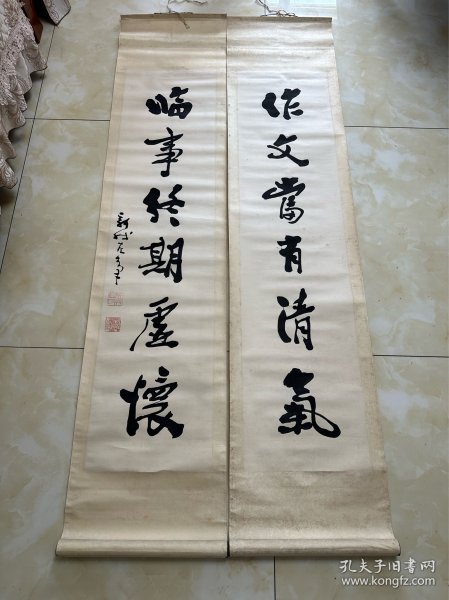 作文當有清氣
临事终期虚懷
孔夫子旧书网
www.kongfz.com